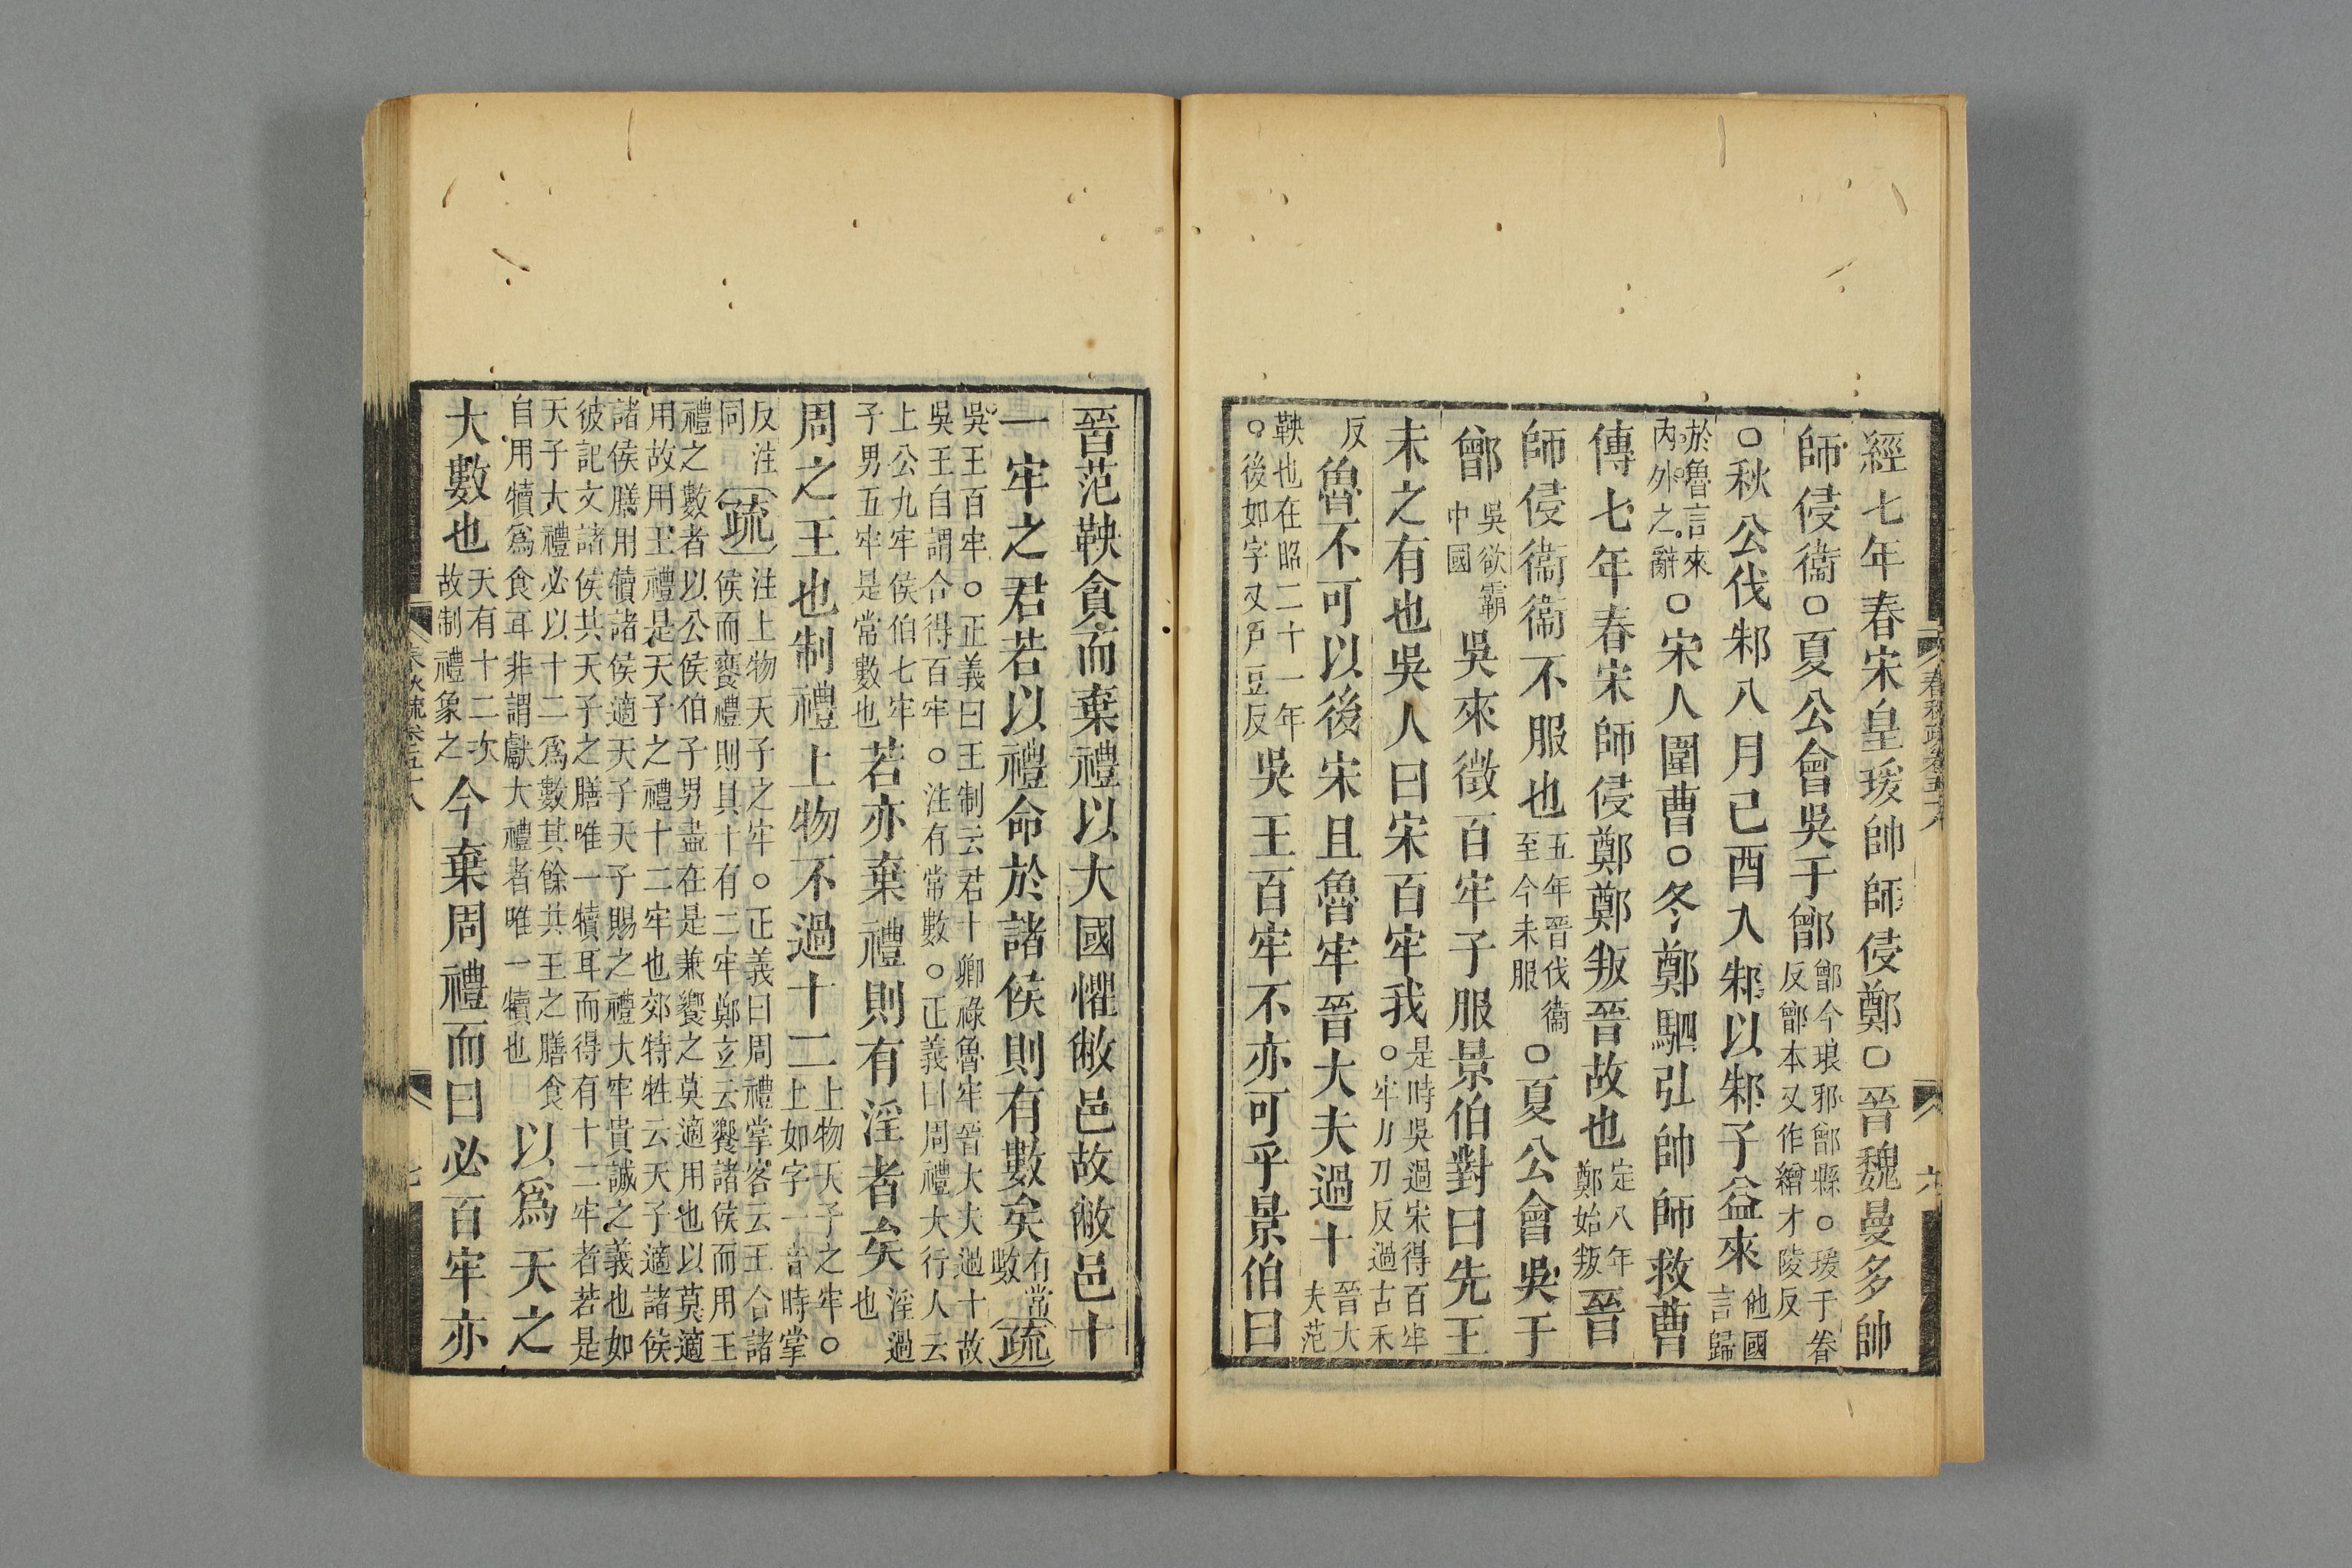 經七年春宋皇瑗帥師侵鄭○晉魏曼多帥
師侵衞○夏公會吳于鄫鄫今琅邪鄫縣○瑗于眷
反鄫本又作繒才陵反
○秋公伐邾八月己酉入邾以邾子益來他國言歸
於魯言來
内外之辭○宋人圍曹○冬鄭駟弘帥師救曹
傳七年春宋師侵鄭鄭叛晉故也定八年
鄭始叛晉
師侵衞衞不服也五年晉伐衞
至今未服○夏公會吳于
鄫吳欲霸
中國吳來徵百牢子服景伯對曰先王
未之有也吳人曰宋百牢我是時吳過宋得百牢
○牢力刀反過古禾
反魯不可以後宋且魯牢晉大夫過十晉大
夫范
鞅也在昭二十一年
○後如字又戸豆反吳王百牢不亦可乎景伯曰
春秋疏卷五十八
六
晉范鞅貪而棄禮以大國懼敝邑故敝邑十
一牢之君若以禮命於諸侯則有數矣有常
數疏
吳王百牢○正義曰王制云君十卿祿魯牢晉大夫過十故
吳王自謂合得百牢○注有常數○正義曰周禮大行人云
上公九牢侯伯七牢
子男五牢是常數也若亦棄禮則有淫者矣淫過
也
周之王也制禮上物不過十二上物天子之牢○
上如字一音時掌
反注
同疏注上物天子之牢○正義曰周禮掌客云王合諸
侯而饗禮則具十有二牢鄭玄云饗諸侯而用王
禮之數者以公侯伯子男盡在是兼饗之莫適用也以莫適
用故用王禮是天子之禮十二牢也郊特牲云天子適諸侯
諸侯膳用犢諸侯適天子天子賜之禮大牢貴誠之義也如
彼記文諸侯共天子之膳唯一犢耳而得有十二牢者若是
天子大禮必以十二爲數其餘共王之膳食
自用犢爲食耳非謂獻大禮者唯一犢也以爲天之
大數也天有十二次
故制禮象之今棄周禮而曰必百牢亦
春秋疏卷五十八
七